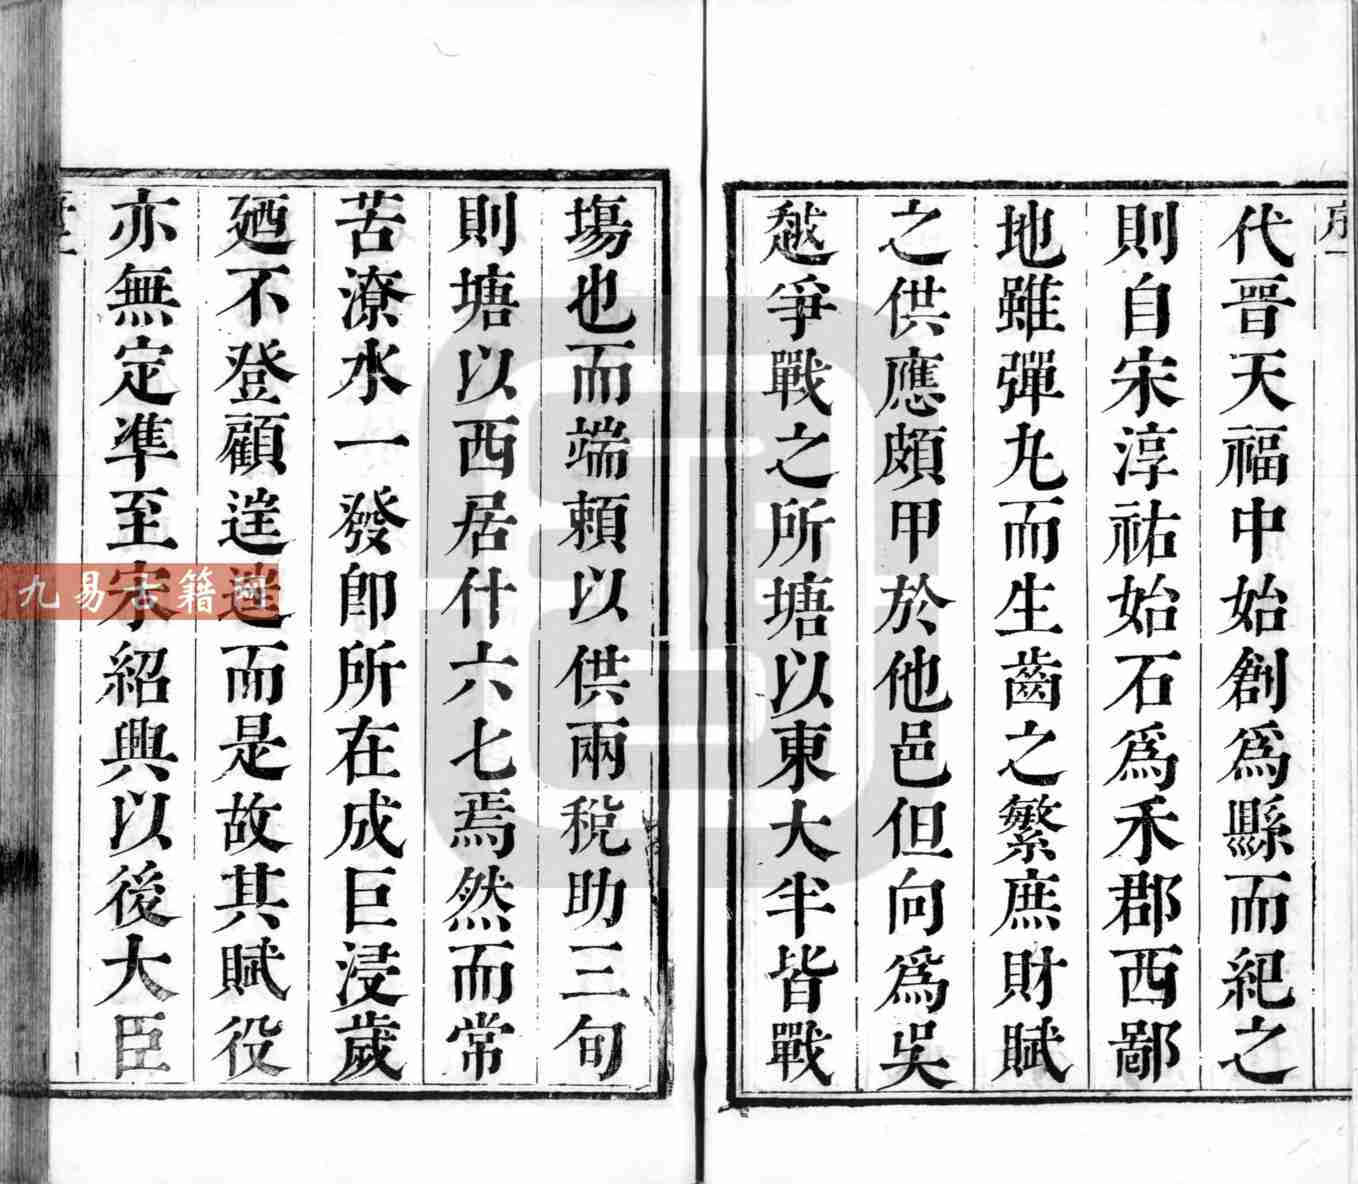 序一
代晉天福中始創爲縣而紀之
則自宋淳祐始石爲禾郡西鄙
地雖彈丸而生齒之繁庶財賦
之供應頗甲於他邑但向爲吳
越爭戰之所塘以東大半皆戰
塲也而端賴以供兩稅助三旬
則塘以西居什六七焉然而常
苦潦水一發卽所在成巨浸歲
廼不登顧逹而是故其賦役
亦無定凖至宋紹興以後大臣
九易古籍网